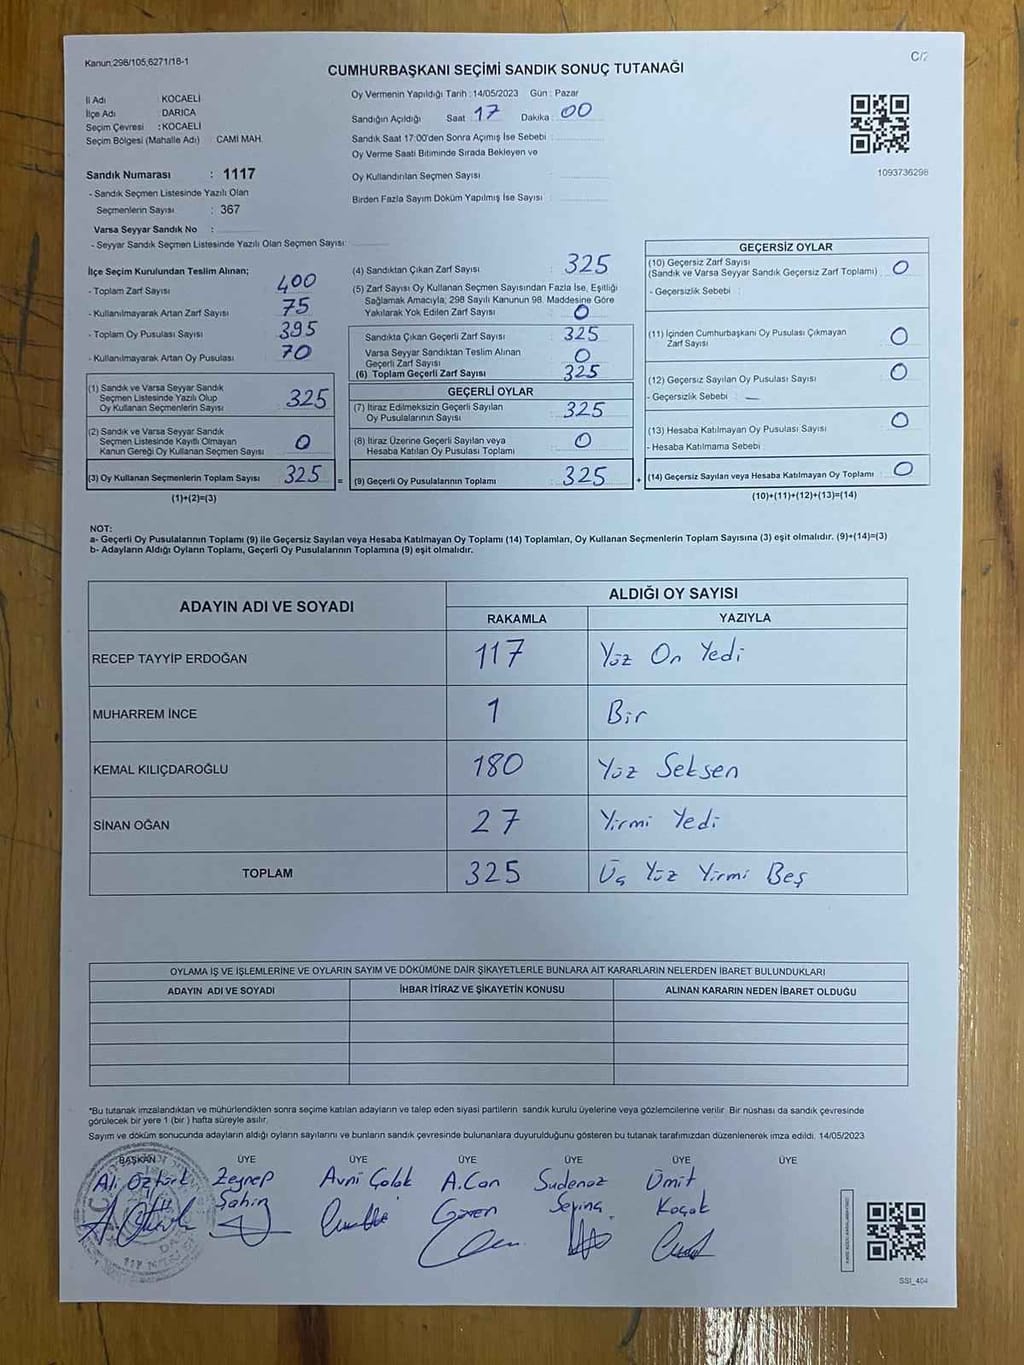 Kanun;298/105,6271/18-1
CUMHURBAŞKANI SEÇİMİ SANDIK SONUÇ TUTANAĞI
İl Adı : KOCAELİ
İlçe Adı : DARICA
Seçim Çevresi : KOCAELİ
Seçim Bölgesi (Mahalle Adı) : CAMİ MAH.
Sandık Numarası : 1117
- Sandık Seçmen Listesinde Yazılı Olan
Seçmenlerin Sayısı : 367
Varsa Seyyar Sandık No :
- Seyyar Sandık Seçmen Listesinde Yazılı Olan Seçmen Sayısı:
Oy Vermenin Yapıldığı Tarih :14/05/2023 Gün : Pazar
Sandığın Açıldığı Saat 17 Dakika 00
Sandık Saat 17:00'den Sonra Açımış İse Sebebi :
Oy Verme Saati Bitiminde Sırada Bekleyen ve
Oy Kullandırılan Seçmen Sayısı :
Birden Fazla Sayım Döküm Yapılmış İse Sayısı :
1093736298
İlçe Seçim Kurulundan Teslim Alınan;
- Toplam Zarf Sayısı : 400
- Kullanılmayarak Artan Zarf Sayısı : 75
- Toplam Oy Pusulası Sayısı : 395
- Kullanılmayarak Artan Oy Pusulası : 70
(1) Sandık ve Varsa Seyyar Sandık
Seçmen Listesinde Yazılı Olup
Oy Kullanan Seçmenlerin Sayısı : 325
(2) Sandık ve Varsa Seyyar Sandık
Seçmen Listesinde Kayıtlı Olmayan
Kanun Gereği Oy Kullanan Seçmen Sayısı : 0
(3) Oy Kullanan Seçmenlerin Toplam Sayısı : 325 =
(1)+(2)=(3)
(4) Sandıktan Çıkan Zarf Sayısı : 325
(5) Zarf Sayısı Oy Kullanan Seçmen Sayısından Fazla İse, Eşitliği
Sağlamak Amacıyla, 298 Sayılı Kanunun 98. Maddesine Göre
Yakılarak Yok Edilen Zarf Sayısı : 0
Sandıkta Çıkan Geçerli Zarf Sayısı : 325
Varsa Seyyar Sandıktan Teslim Alınan
Geçerli Zarf Sayısı : 0
(6) Toplam Geçerli Zarf Sayısı : 325
GEÇERLİ OYLAR
(7) İtiraz Edilmeksizin Geçerli Sayılan
Oy Pusulalarının Sayısı : 325
(8) İtiraz Üzerine Geçerli Sayılan veya
Hesaba Katılan Oy Pusulası Toplamı : 0
(9) Geçerli Oy Pusulalarının Toplamı : 325 +
GEÇERSİZ OYLAR
(10) Geçersiz Zarf Sayısı
(Sandık ve Varsa Seyyar Sandık Geçersiz Zarf Toplamı) : 0
- Geçersizlik Sebebi :
(11) İçinden Cumhurbaşkanı Oy Pusulası Çıkmayan
Zarf Sayısı : 0
(12) Geçersiz Sayılan Oy Pusulası Sayısı : 0
- Geçersizlik Sebebi : —
(13) Hesaba Katılmayan Oy Pusulası Sayısı : 0
- Hesaba Katılmama Sebebi :
(14) Geçersiz Sayılan veya Hesaba Katılmayan Oy Toplamı : 0
(10)+(11)+(12)+(13)=(14)
NOT:
a- Geçerli Oy Pusulalarının Toplamı (9) ile Geçersiz Sayılan veya Hesaba Katılmayan Oy Toplamı (14) Toplamları, Oy Kullanan Seçmenlerin Toplam Sayısına (3) eşit olmalıdır. (9)+(14)=(3)
b- Adayların Aldığı Oyların Toplamı, Geçerli Oy Pusulalarının Toplamına (9) eşit olmalıdır.
ADAYIN ADI VE SOYADI ALDIĞI OY SAYISI
RAKAMLA YAZIYLA
RECEP TAYYİP ERDOĞAN 117 Yüz On Yedi
MUHARREM İNCE 1 Bir
KEMAL KILIÇDAROĞLU 180 Yüz Seksen
SİNAN OĞAN 27 Yirmi Yedi
TOPLAM 325 Üç Yüz Yirmi Beş
OYLAMA İŞ VE İŞLEMLERİNE VE OYLARIN SAYIM VE DÖKÜMÜNE DAİR ŞİKAYETLERLE BUNLARA AİT KARARLARIN NELERDEN İBARET BULUNDUKLARI
ADAYIN ADI VE SOYADI İHBAR İTİRAZ VE ŞİKAYETİN KONUSU ALINAN KARARIN NEDEN İBARET OLDUĞU
*Bu tutanak imzalandıktan ve mühürlendikten sonra seçime katılan adayların ve talep eden siyasi partilerin sandık kurulu üyelerine veya gözlemcilerine verilir. Bir nüshası da sandık çevresinde
görülecek bir yere 1 (bir ) hafta süreyle asılır.
Sayım ve döküm sonucunda adayların aldığı oyların sayılarını ve bunların sandık çevresinde bulunanlara duyurulduğunu gösteren bu tutanak tarafımızdan düzenlenerek imza edildi. 14/05/2023
BAŞKAN ÜYE ÜYE ÜYE ÜYE ÜYE ÜYE
Ali Öztürk Zeynep Avni Çolak A.Can Sudenaz Ümit
Şahin Koçak
SSI_404